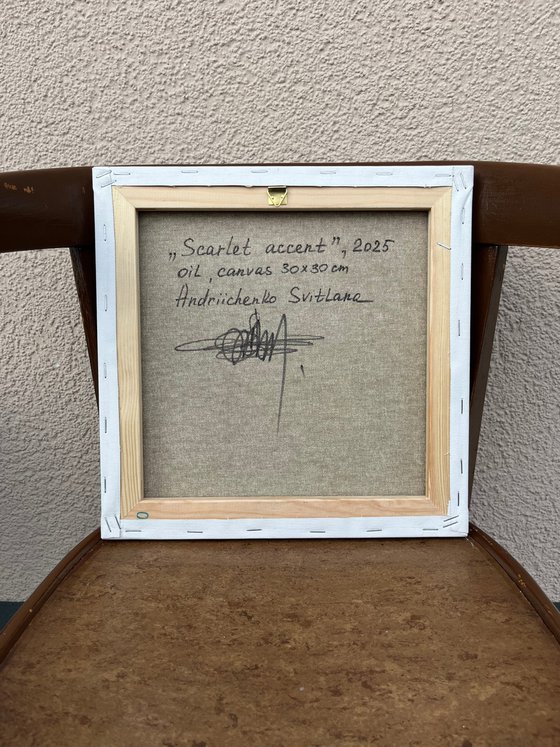 „Scarlet accent”, 2025
oil, canvas 30x30cm
Andriichenko Svitlana